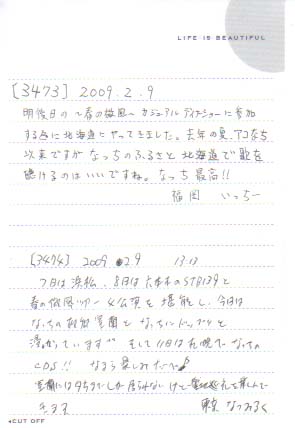 LIFE IS BEAUTIFUL
[3473] 2009.2.9
明後日の〜春の微風〜カジュアルディナーショーに参加
する為に北海道にやってきました。去年の夏、アコなち
以来ですが なっちのふるさと 北海道で歌を
聴けるのはいいですね。なっち最高!!
福岡 いっちー
[3474] 2009 2 9 13:13
7日は浜松、8日は六本木のSTB139と
春の微風ツアー4公演を堪能し、今日は
なっちの 室蘭で なっちにドップリと
浸かっています そして11日は札幌でなっちの
CDS!! なまら楽しみだべ♪
室蘭には夕方までしか居られないけど
きます 東京 なつみるく
CUT OFF